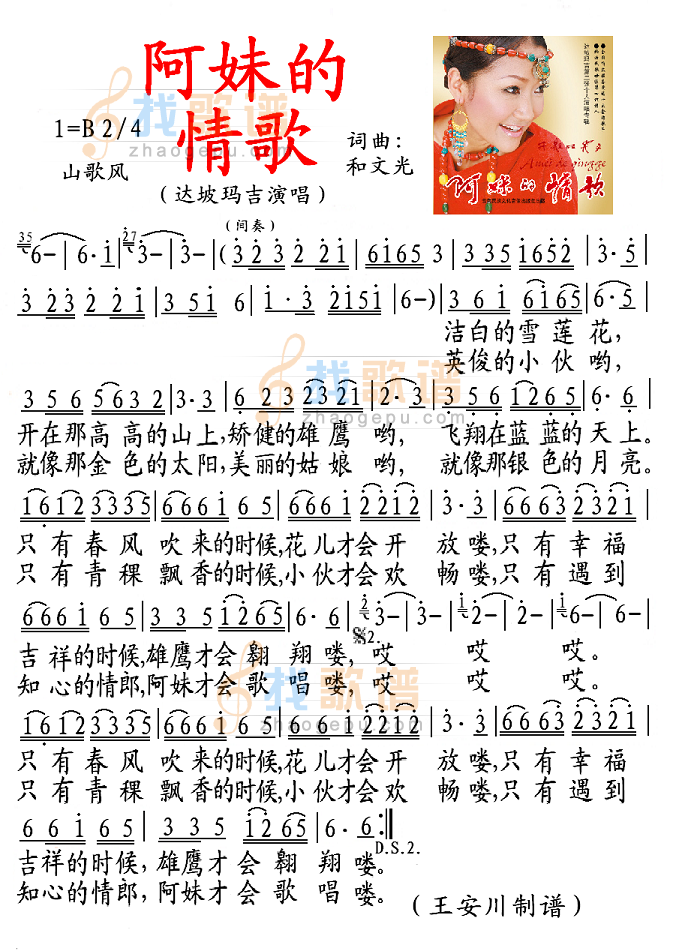 阿妹的
情歌
1=B 2/4
山歌风
词曲：
和文光
（达坡玛吉演唱）
阿妹的情歌
找歌谱
zhaogepu.com
（间奏）
6－｜6·i｜3－｜3－｜（3 23 2 21｜6165 3｜335 1652｜3·5
3 23 2 21｜3 51 6｜1·3 2151｜6－）｜3 6 1 6165｜6·5｜
洁白的雪莲花，
英俊的小伙哟，
3 5 6 5 63 2｜3·3｜6 23 2321｜2·3｜3 56 1265｜6·6｜
开在那高高的山上，矫健的雄鹰哟，飞翔在蓝蓝的天上。
就像那金色的太阳，美丽的姑娘哟，就像那银色的月亮。
1612 3335｜6661 65｜6661 2212｜3·3｜6663 2321｜
只有春风吹来的时候，花儿才会开放喽，只有幸福
只有青稞飘香的时候，小伙才会欢畅喽，只有遇到
6661 65｜3 35｜1265｜6·6｜3－｜3－｜2－｜2－｜6－｜6－｜
2.
吉祥的时候，雄鹰才会翱翔喽，哎哎哎。
知心的情郎，阿妹才会歌唱喽，哎哎哎。
1612 3335｜6661 65｜6 61 2212｜3·3｜6663 2321｜
只有春风吹来的时候，花儿才会开放喽，只有幸福
只有青稞飘香的时候，小伙才会欢畅喽，只有遇到
6 61 65｜3 35 1265｜6·6:‖
D.S.2.
吉祥的时候，雄鹰才会翱翔喽。
知心的情郎，阿妹才会歌唱喽。
（王安川制谱）